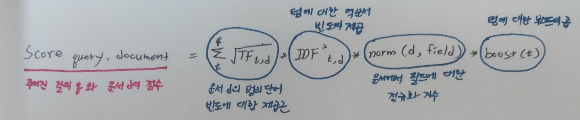 텀에 대한 역문서
빈도의 제곱
텀에 대한 부스트의 곱
Score query, document = q Σ t √TF t,d * IDF² t,d * norm (d, field) * boost (t)
주어진 질의 q와 문서 d의 점수
문서 d의 텀의 단어
빈도에 대한 제곱근
문서에서 필드에 대한
정규화 가수